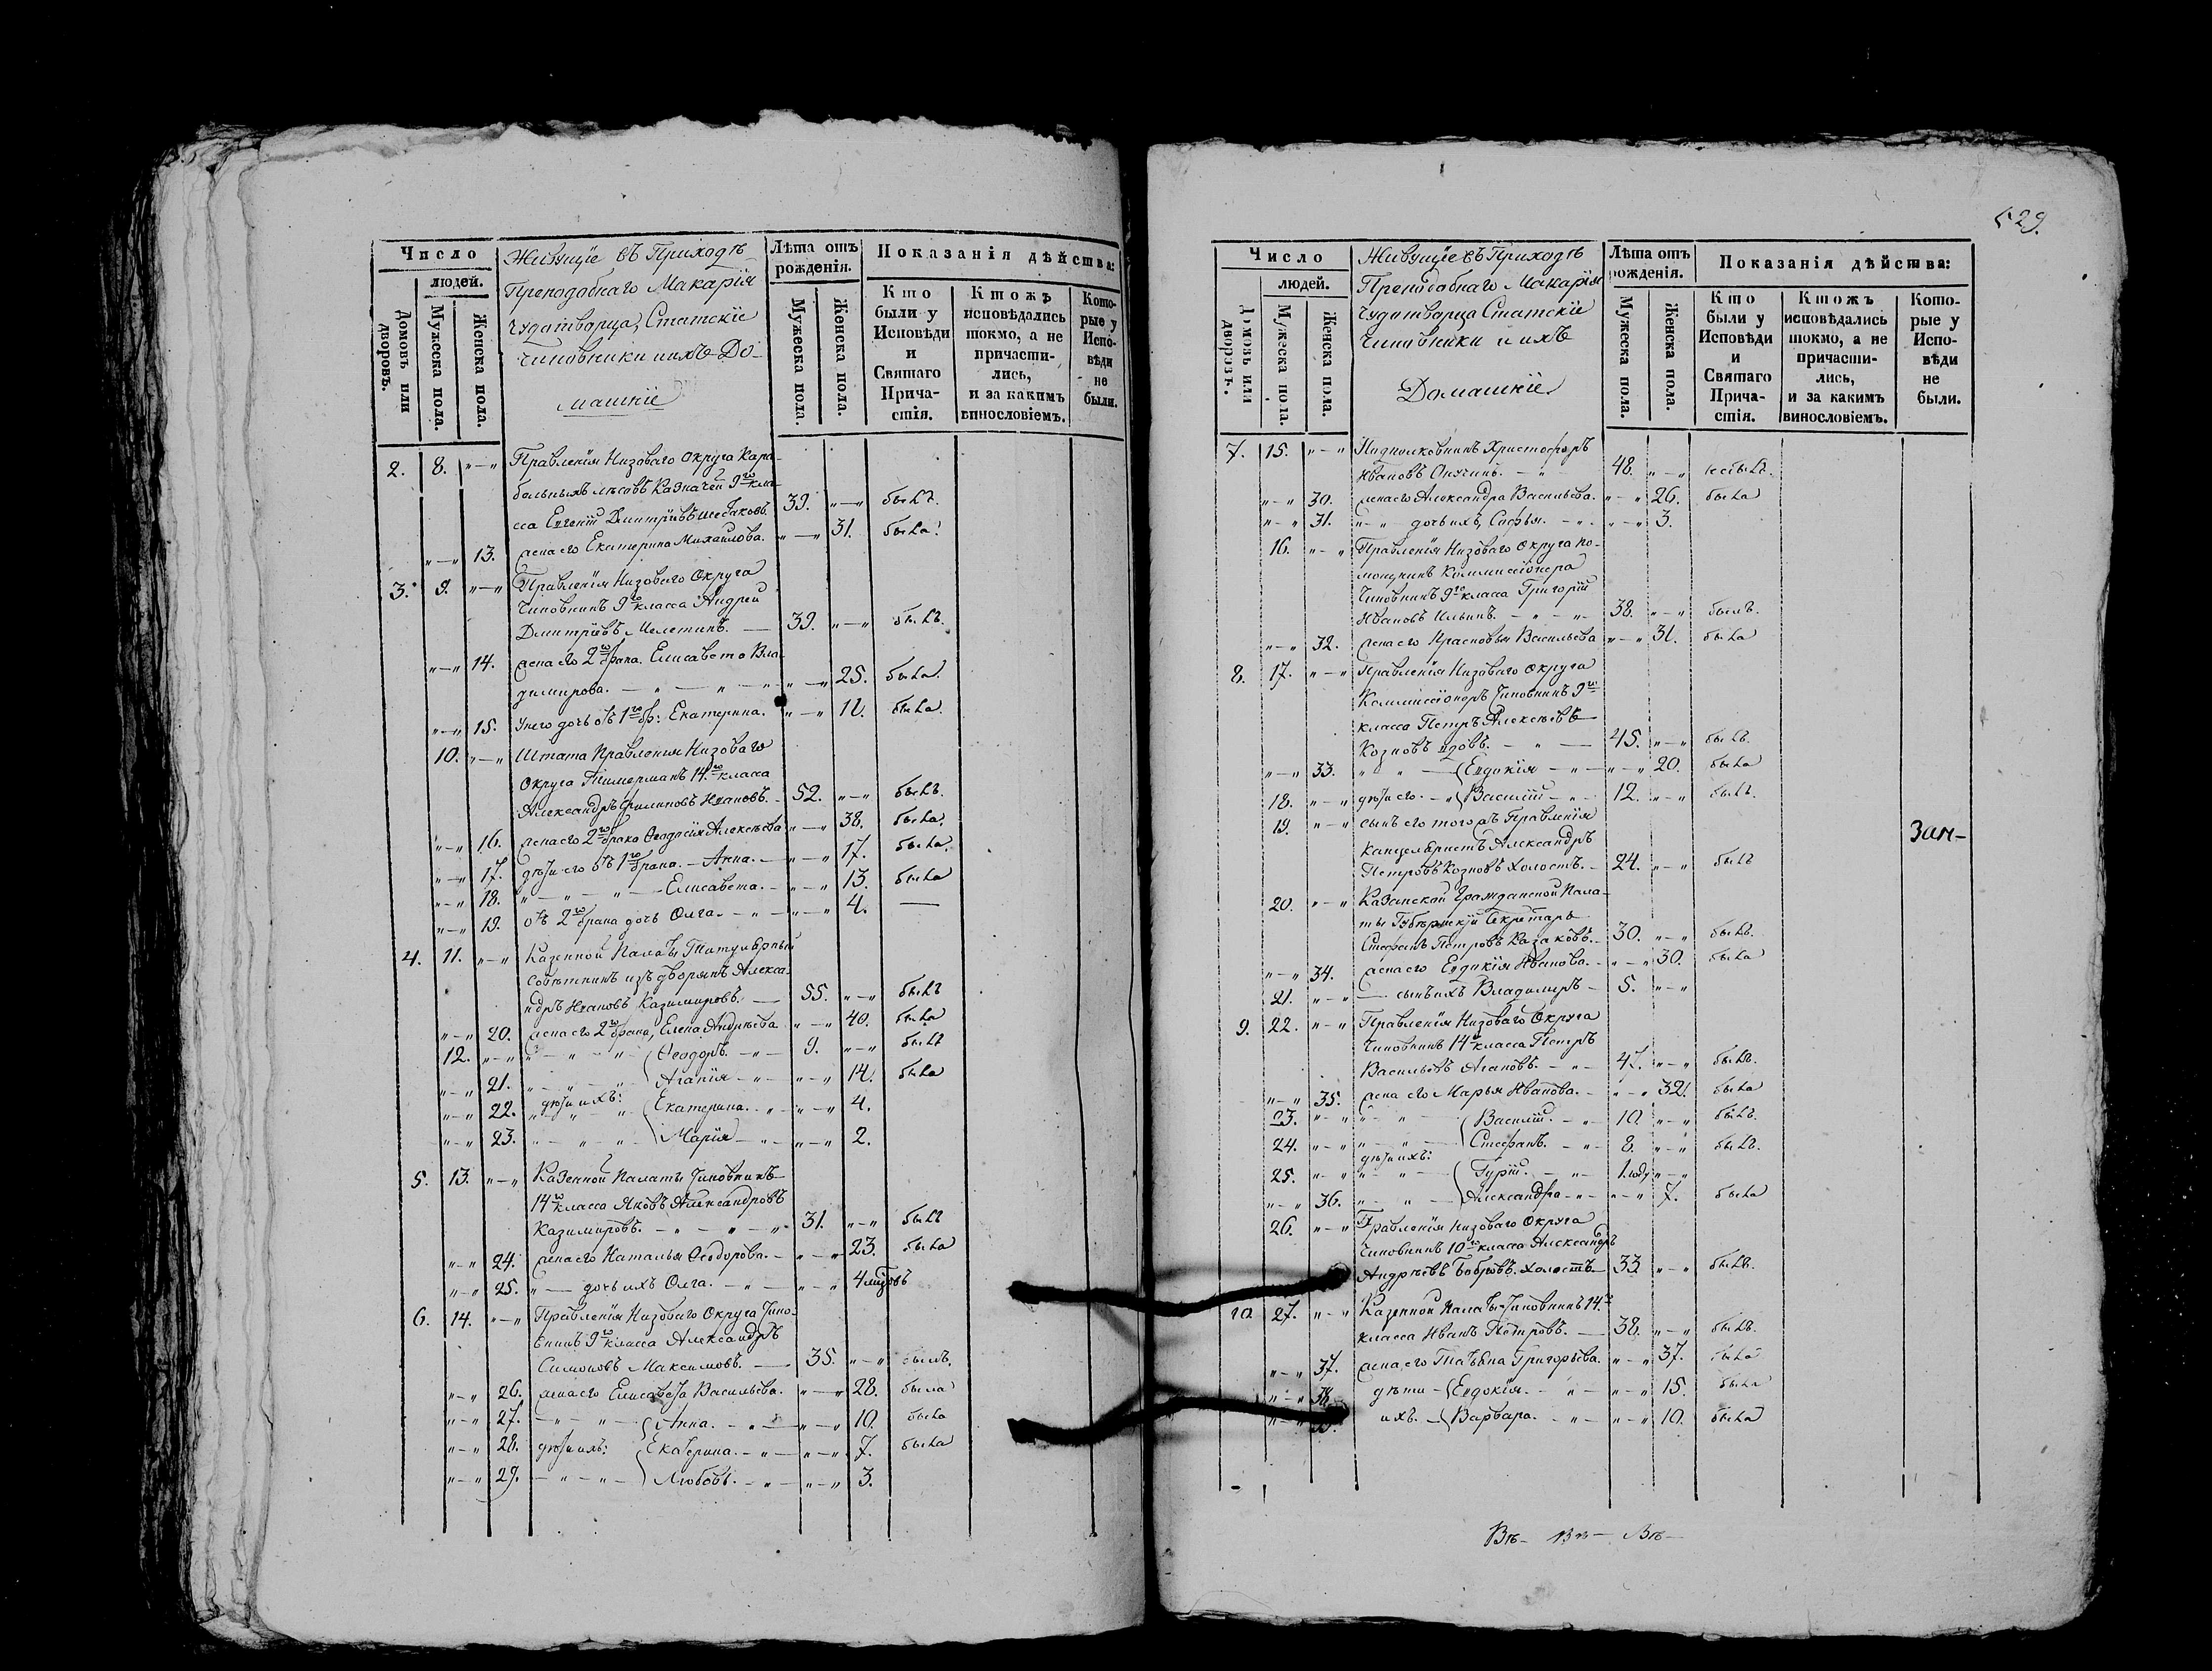 Число
людей.
Домовъ или дворовъ.
Мужеска пола.
Женска пола.
Живущіе въ Приходѣ
Преподобнаго Макарія
Чудотворца, Статскіе
Чиновники и ихъ До-
машніе
Лѣта отъ рожденія.
Мужеска пола
Женска пола.
Показанія дѣйства:
Кто были у Исповѣди и Святаго Прича-стія.
Ктожъ исповѣдались токмо, а не причасти-лись, и за какимъ винословіемъ.
Кото-рые у Испо-вѣди не были.
2. 8. „—„ Правленія Низоваго Округа Кара-
бельныхъ лѣсовъ Казначей 9го кла-
сса Евгеній Дмитріевъ 39. „—„ былъ.
„—„ 13. жена его Екатерина Михайлова. „—„ 31. была.
3. 9. „—„ Правленія Низоваго Округа
Чиновникъ 9го класса Андрей
Дмитріевъ Мелетинъ. — 39. „—„ былъ.
„—„ 14. жена его 2го брака. Елисавета Вла-
димирова. — „ — „ — „ „—„ 25. была.
„—„ 15. У него дочь отъ 1го бр: Екатерина. „—„ 11. была.
10. „—„ Штата Правленія Низоваго
Округа 14го класса
Александръ Филиповъ Ивановъ. - 52. „—„ былъ.
„—„ 16. жена его 2го брака Ѳеодосія Алексѣева „—„ 38. была.
„—„ 17. дѣти его отъ 1го брака. - Анна. — „—„ 17. была.
„—„ 18. „ — „ — „ — Елисавета. - „—„ 13. была
„—„ 19. отъ 2го брака дочь Олга. - „ - „—„ 4. —
4. 11. „—„ Казенной Палаты Титулярный
Совѣтникъ изъ дворянъ Алекса-
ндръ Ивановъ Казимировъ. — 55. „—„ былъ
„—„ 20. жена его 2го брака, Елена Андрѣева „—„ 40. была
12. „—„ „ — „ — „ Ѳеодоръ. - „ — 9. „—„ былъ
„—„ 21. „ — „ — „ Агапія - „ — „—„ 14. была
дѣти ихъ:
„—„ 22. „ — „ — „ Екатерина. - „ „—„ 4.
„—„ 23. „ — „ — „ Марія — „ — „—„ 2.
5. 13. „—„ Казенной Палаты Чиновникъ
14го класса Яковъ Александровъ
Казимировъ. - „ — „ — „ 31. „—„ былъ
„—„ 24. жена его Наталья Ѳеодорова. - „—„ 23. была
„—„ 25. „ — дочь ихъ Олга. - „ — „—„ 4 мѣсяцовъ
6. 14. „—„ Правленія Низоваго Округа Чино-
вникъ 9го класса Александръ
Симоновъ Максимовъ. — 35. „—„ былъ.
„—„ 26. жена его Елисавета Васильева. „—„ 28. была
„—„ 27. — „ — „ — Анна. - „ — „—„ 10. была
„—„ 28. дѣти ихъ: Екатерина. - „ „—„ 7. была
„—„ 29. — „ — „ — Любовь. - „ „—„ 3.
529.
Число
людей.
Домовъ или дворовъ.
Мужеска пола.
Женска пола.
Живущіе въ Приходѣ
Преподобнаго Макарія
Чудотворца Статскіе
Чиновники и ихъ
Домашніе
Лѣта отъ рожденія.
Мужеска пола.
Женска пола.
Показанія дѣйства:
Кто были у Исповѣди и Святаго Прича-стія.
Ктожъ исповѣдались токмо, а не причасти-лись, и за какимъ винословіемъ.
Кото-рые у Испо-вѣди не были.
7. 15. „—„ Подполковникъ Христофоръ
Ивановъ Онучинъ. - „ 48. „—„
„—„ 30. жена его Александра Васильева. „—„ 26. была
„—„ 31. „ - „ дочь ихъ, Софья. - „. „—„ 3.
16. „—„ Правленія Низоваго Округа по-
мощникъ Коммиссіонера
Чиновникъ 9го класса Григорій
Ивановъ Ильинъ. - „ - „ 38. „—„ былъ.
„—„ 32. жена его Прасковья Васильева „—„ 31. была
8. 17. „—„ Правленія Низоваго Округа
Коммиссіонеръ Чиновникъ 9го
класса Петръ Алексѣевъ
Козновъ вдовъ. - „ — 45. „—„ былъ.
„—„ 33. „ „ — Евдокія — „ „—„ 20. была
18. „—„ дѣти его. - „ Василій - „ - 12. „—„ былъ.
19. „—„ сынъ его того жъ Правленія
канцеляристъ Александръ
Петровъ Козновъ холостъ. - 24. „—„ былъ
20. „—„ Казанской Гражданской Пала-
ты Губернскій Секретарь
Стефанъ Петровъ Казаковъ. - 30. „—„ былъ.
„—„ 34. жена его Евдокія Иванова. - „—„ 30. была
21. „—„ — сынъ ихъ Владимиръ - 5. „—„
9. 22. „—„ Правленія Низоваго Округа
Чиновникъ 14го класса Петръ
Васильевъ Агаповъ. - „ 47. „—„ былъ.
„—„ 35. жена его Марья Иванова. - „—„ 32. была
23. „—„ „ - „ Василій. - „ 10. „—„ былъ.
24. „—„ „ — „ Стефанъ. - „ 8. „—„ былъ.
дѣти ихъ:
25. „—„ „ — „ Гурій. - „ 1 году „—„
„—„ 36. „ - „ — Александра - „ „—„ 7. была
26. „—„ Правленія Низоваго Округа
Чиновникъ 10го класса Александръ
Андрѣевъ Бобровъ. холостъ. 33. „—„ былъ.
10. 27. „—„ Казенной Палаты Чиновникъ 14го
класса Иванъ Петровъ. — 38. „—„ былъ.
„—„ 37. жена его Татьяна Григорьева. „—„ 37. была
„—„ 38. дѣти - Евдокія. - „ „—„ 15. была
„—„ 39. ихъ. - Варвара. - „ „—„ 10. была
Въ- Въ- Въ-